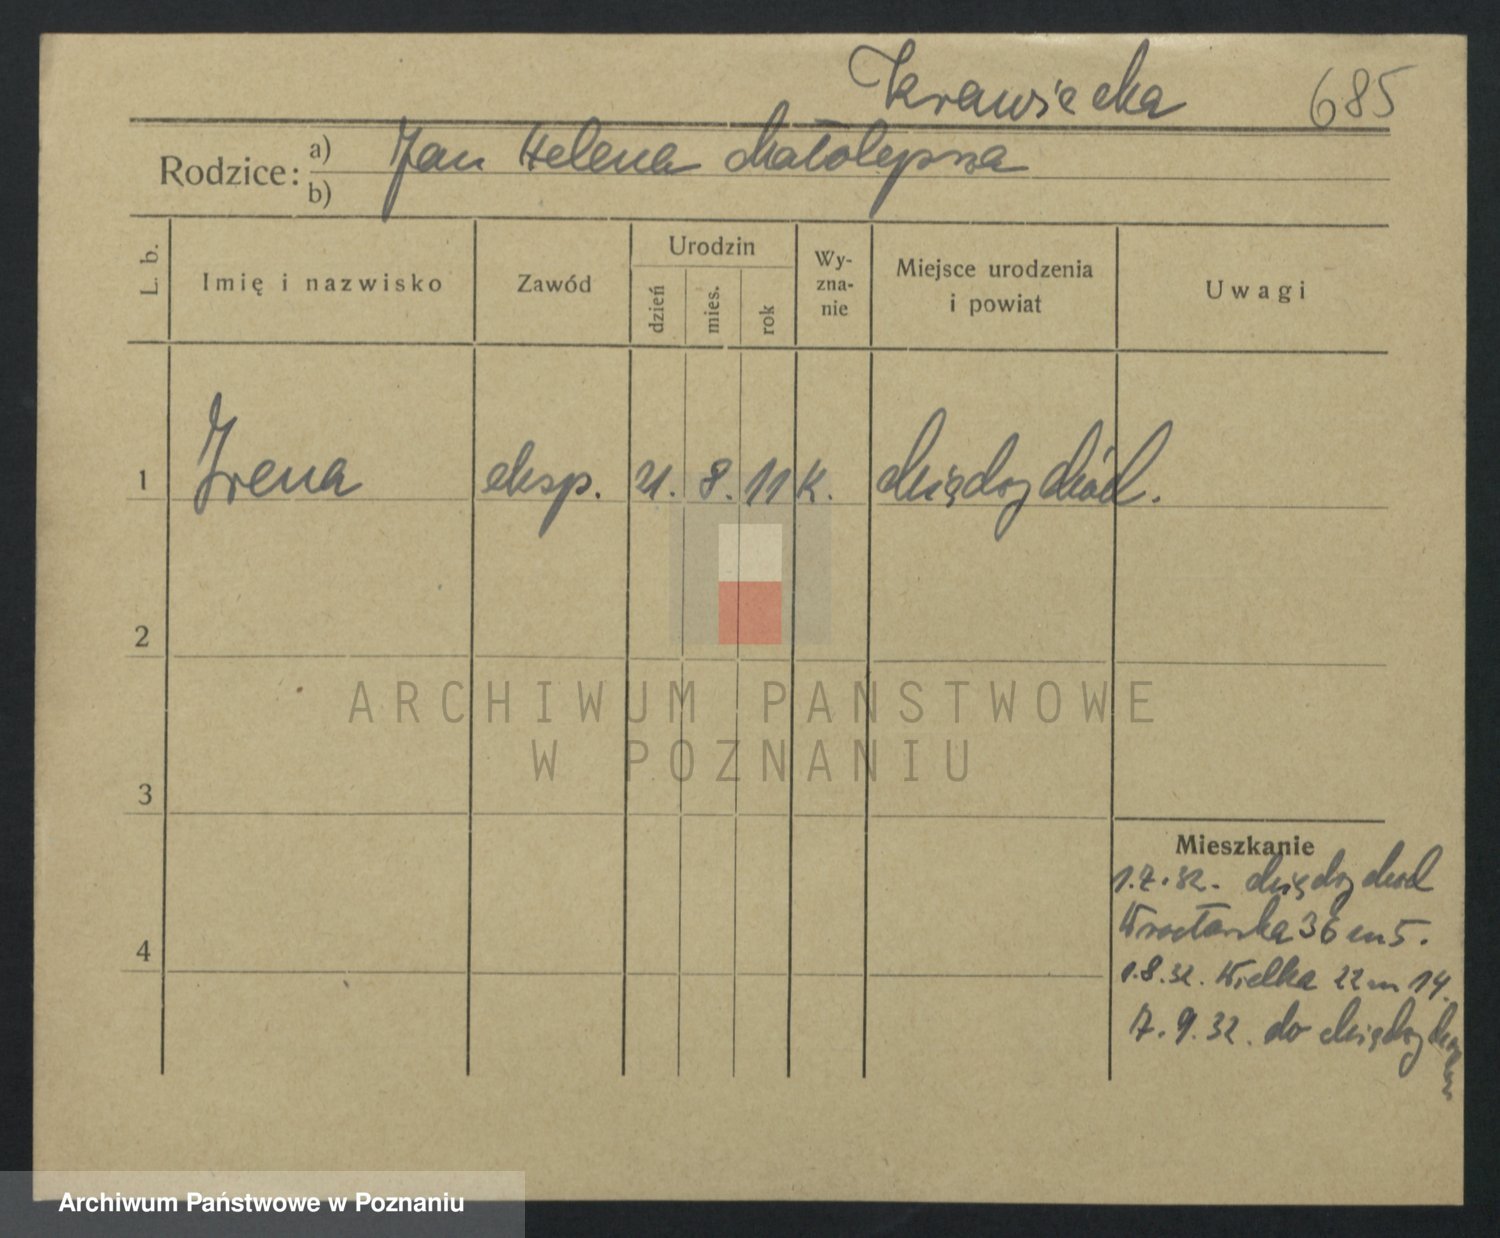 Krawiecka 685
Rodzice: a) b) Jan Helena Małolepsza
L. b. Imię i nazwisko Zawód Urodzin dzień mies. rok Wy-zna-nie Miejsce urodzenia i powiat Uwagi
1 Irena eksp. 21. 8. 11 K. Międzychód.
2
ARCHIWUM PAŃSTWOWE
W POZNANIU
3
Mieszkanie
1.7.32. Międzychód
Wrocławska 36 m 5.
4
1.8.32. Wielka 22 m 14.
7.9.32. do Międzychodu
Archiwum Państwowe w Poznaniu